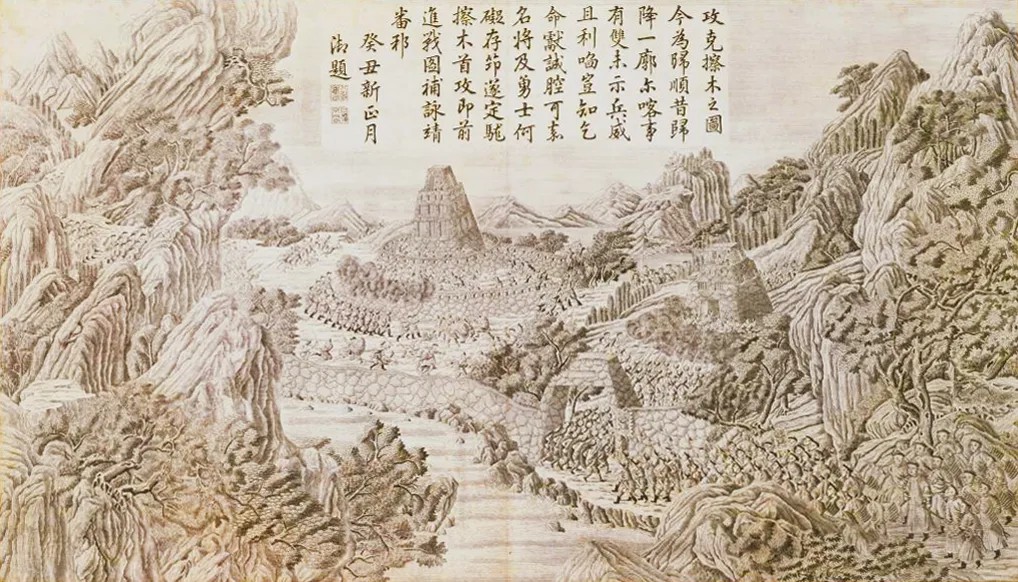 攻克擦木之圖
今為歸順昔歸
降一廓尓喀事
有雙未示兵威
且利啗豈知乞
命獻誠腔可嘉
名将及勇士何
礙存笻遂定駹
擦木首攻即前
進戰圖補詠靖
番邪
癸丑新正月
御題